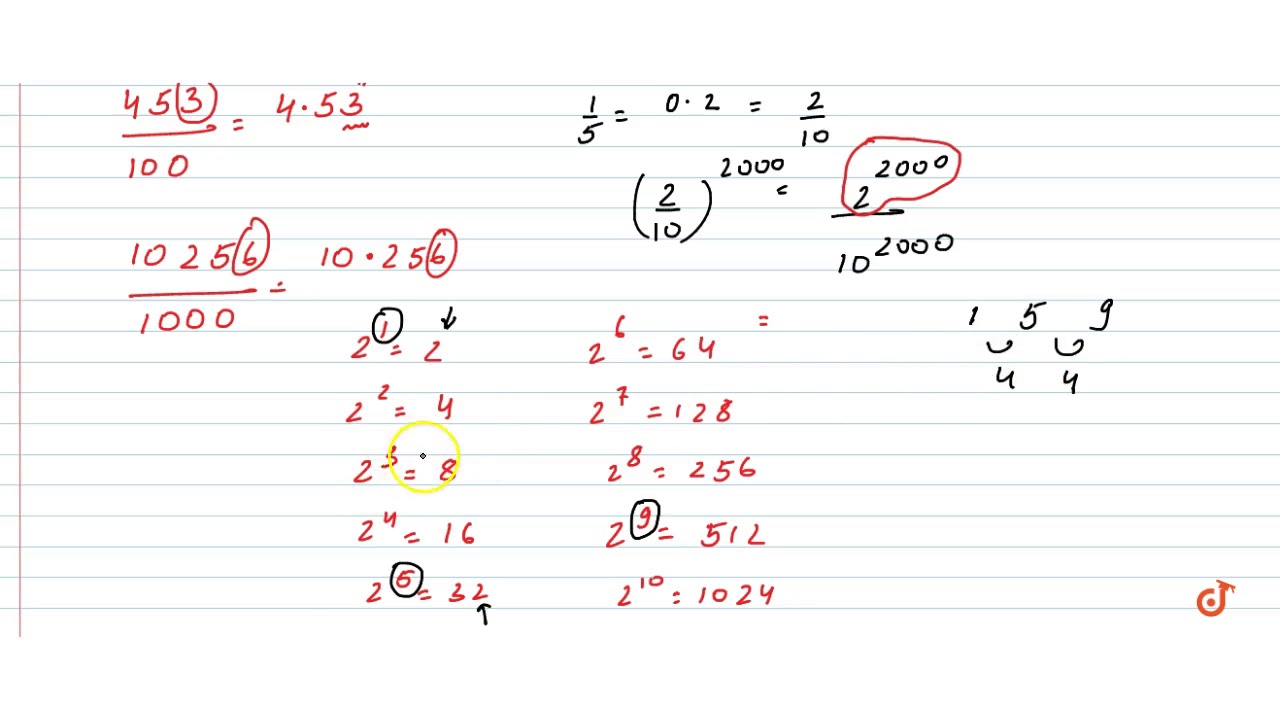 453/100 = 4.53
10256/1000 = 10.256
1/5 = 0.2 = 2/10
(2/10)^2000 = 2^2000/10^2000
2^1 = 2
2^2 = 4
2^3 = 8
2^4 = 16
2^5 = 32
2^6 = 64
2^7 = 128
2^8 = 256
2^9 = 512
2^10 = 1024
=
1 5 9
4 4